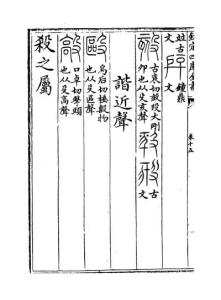 欽定四庫全書
卷十五
竝古文
鐘鼎文
古哀切㱾改大剛
卯也从殳亥聲
古文
諧近聲
烏后切捶毄物
也从殳區聲
口卓切擊頭
也从殳高聲
殺之屬